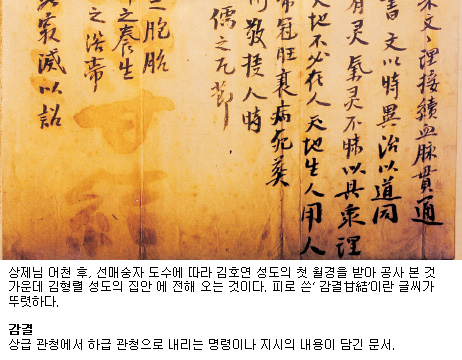 文理接續血脈貫通
書 文以時異治以道同
有灵 氣灵不昧以具衆理
天地不必在人 天地生人用人
帶冠旺衰病死葬
敬授人時
儒之凡節
之胞胎
之養生
之浴帶
寂滅以詔
甘結
상제님 어천 후, 선매숭자 도수에 따라 김호연 성도의 첫 월경을 받아 공사 본 것
가운데 김형렬 성도의 집안 에 전해 오는 것이다. 피로 쓴‘ 감결甘結’이란 글씨가
뚜렷하다.
감결
상급 관청에서 하급 관청으로 내리는 명령이나 지시의 내용이 담긴 문서.